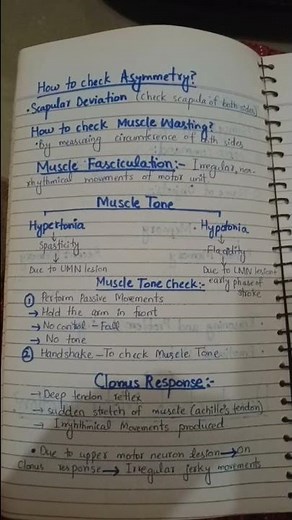 How to check Asymmetry?
• Scapular Deviation (check scapula of both sides)
How to check Muscle Wasting?
• By measuring circumference of both sides
Muscle Fasciculation:- Irregular, non-
rhythmical movements of motor unit
Muscle Tone
Hypertonia Hypotonia
Spasticity Flaccidity
Due to UMN lesion Due to LMN lesion +
early phase of
stroke
Muscle Tone Check:-
① Perform Passive Movements
→ Hold the arm in front
→ No control - Fall
→ No tone
② Handshake - To check Muscle Tone
Clonus Response:-
→ Deep tendon reflex
→ sudden stretch of muscle (achille's tendon)
→ Movements produced
• Due to upper motor neuron lesion → on
Clonus response → Irregular jerky movements